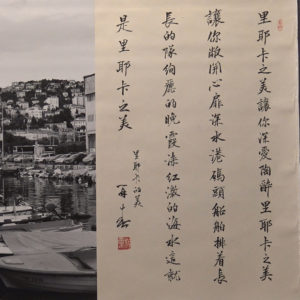 里耶卡之美讓你深愛陶醉里耶卡之美
讓你敞開心扉深水港碼頭船舶排着長
長的隊絢麗的晚霞染紅激的海水這就
是里耶卡之美
里耶卡的美